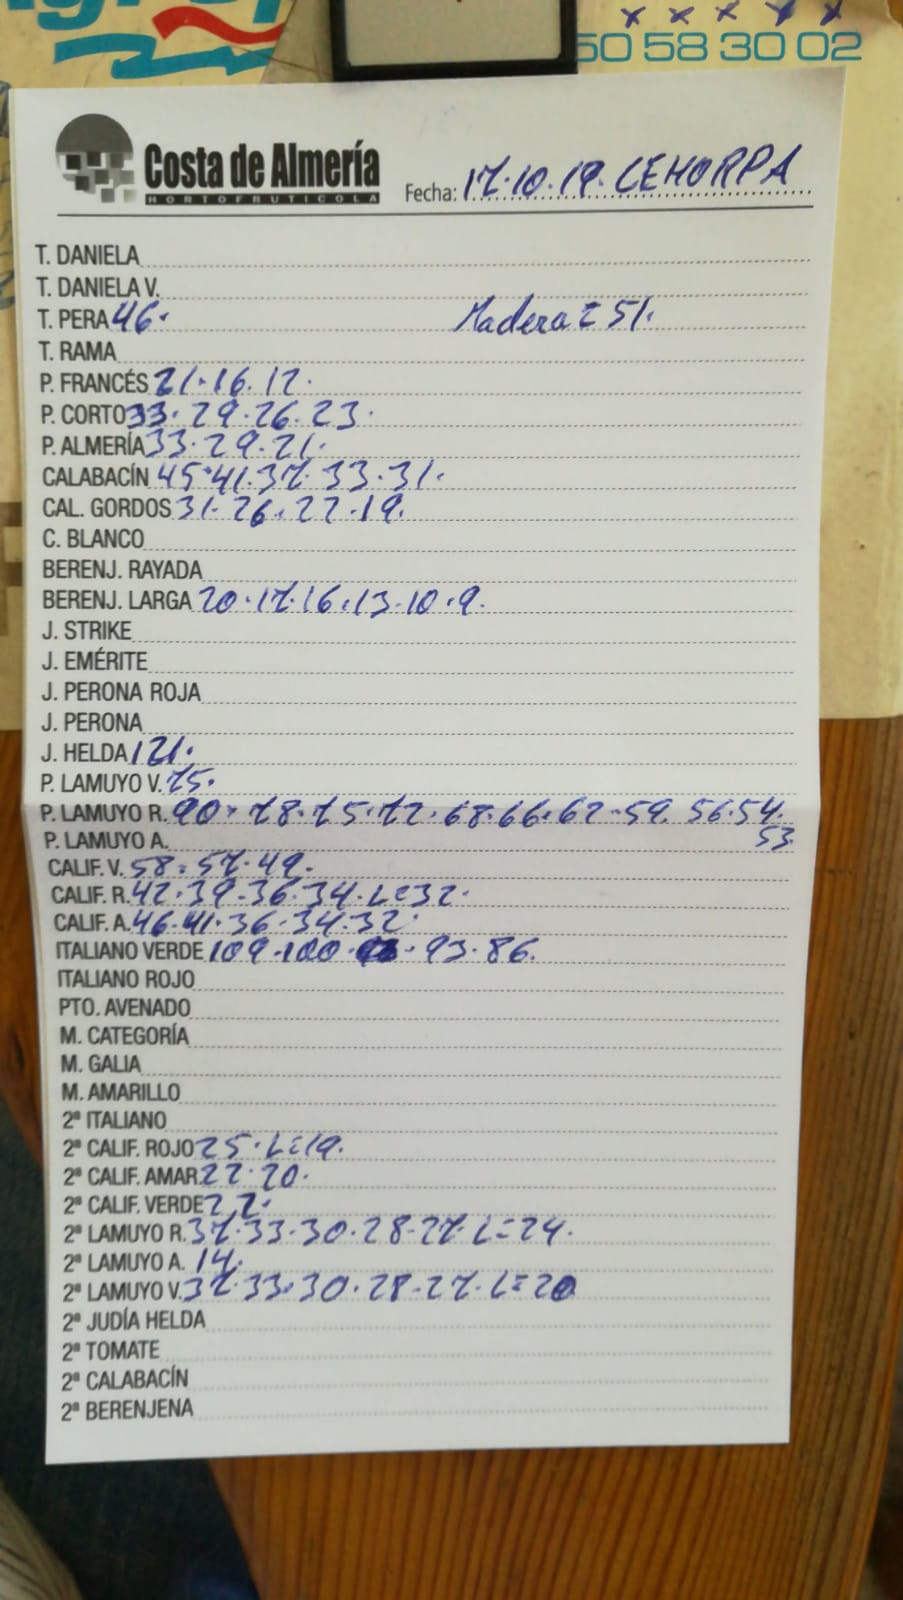 50 58 30 02
Costa de Almería
HORTOFRUTICOLA
Fecha: 17.10.19. CEHORPA
T. DANIELA
T. DANIELA V.
T. PERA 46. Madera = 51.
T. RAMA
P. FRANCÉS 21.16.12.
P. CORTO 33.29.26.23.
P. ALMERÍA 33.29.21.
CALABACÍN 45.41.37.33.31.
CAL. GORDOS 31.26.22.19.
C. BLANCO
BERENJ. RAYADA
BERENJ. LARGA 20.17.16.13.10.9.
J. STRIKE
J. EMÉRITE
J. PERONA ROJA
J. PERONA
J. HELDA 121.
P. LAMUYO V. 75.
P. LAMUYO R. 90.78.75.72.68.66.62.59.56.54.
P. LAMUYO A. 53.
CALIF. V. 58.57.49.
CALIF. R. 42.39.36.34.L=32.
CALIF. A. 46.41.36.34.32
ITALIANO VERDE 109.100. .93.86.
ITALIANO ROJO
PTO. AVENADO
M. CATEGORÍA
M. GALIA
M. AMARILLO
2ª ITALIANO
2ª CALIF. ROJO 25.L=19.
2ª CALIF. AMAR. 22.20.
2ª CALIF. VERDE 22.
2ª LAMUYO R. 37.33.30.28.27.L=24.
2ª LAMUYO A. 14.
2ª LAMUYO V. 37.33.30.28.27.L=20
2ª JUDÍA HELDA
2ª TOMATE
2ª CALABACÍN
2ª BERENJENA